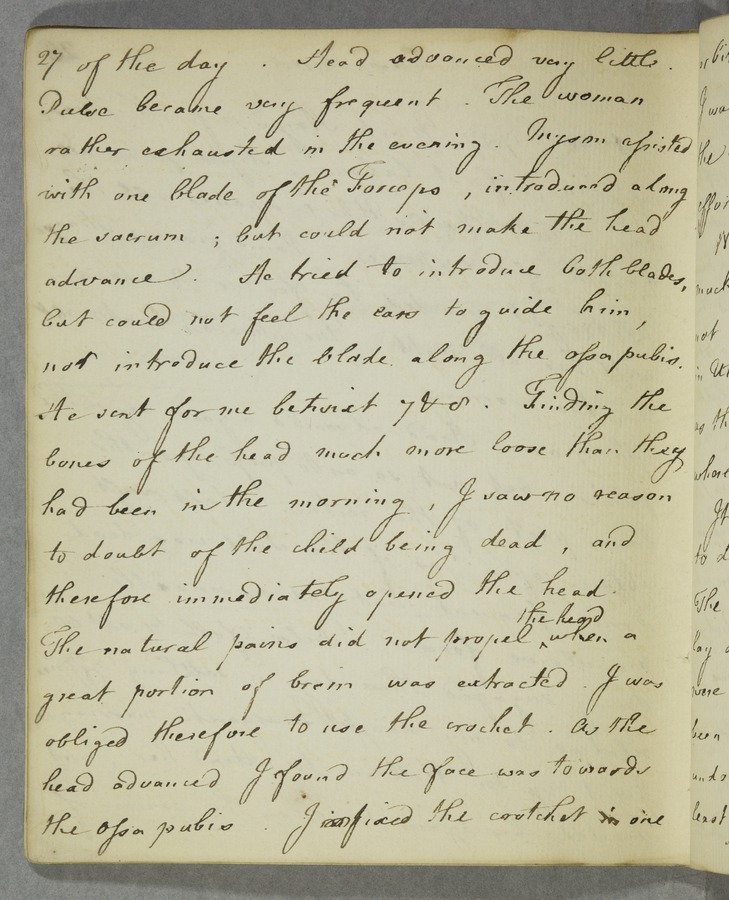 27 of the day . Head advanced very little .
Pulse became very frequent . The woman
rather exhausted in the evening . assisted
with one blade of the Forceps , introduced along
the sacrum ; but could not make the head
advance . He tried to introduce both blades,
but could not feel the ears to guide him,
not introduce the blade along the ossa pubis.
He sent for me betwixt 7 & 8 . Finding the
bones of the head much more loose than they
had been in the morning , I saw no reason
to doubt of the child being dead , and
therefore immediately opened the head .
the head
The natural pains did not propel ^ when a
great portion of brain was extracted . I was
obliged therefore to use the crochet . As the
head advanced I found the face was towards
the ossa pubis . I fixed the crotchet in one